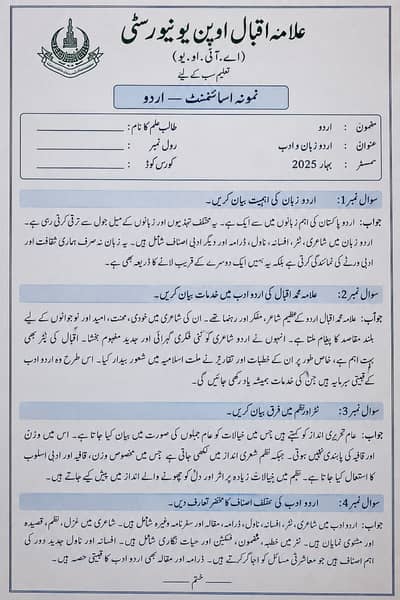 علامہ اقبال اوپن یونیورسٹی
(اے۔آئی۔او۔یو)
تعلیم سب کے لیے
نمونہ اسائنمنٹ — اردو
مضمون : اردو
طالب علم کا نام :
عنوان : اردو زبان و ادب
رول نمبر :
سمسٹر : بہار 2025
کورس کوڈ :
سوال نمبر 1: اردو زبان کی اہمیت بیان کریں۔
جواب: اردو پاکستان کی اہم زبانوں میں سے ایک ہے۔ یہ مختلف تہذیبوں اور زبانوں کے میل جول سے ترقی کرتی رہی ہے۔
اردو زبان میں شاعری، نثر، افسانہ، ناول، ڈرامہ اور دیگر ادبی اصناف شامل ہیں۔ یہ زبان نہ صرف ہماری ثقافت اور
ادبی ورثے کی نمائندگی کرتی ہے بلکہ یہ ہمیں ایک دوسرے کے قریب لانے کا ذریعہ بھی ہے۔
سوال نمبر 2: علامہ محمد اقبال کی اردو ادب میں خدمات بیان کریں۔
جواب: علامہ محمد اقبال اردو کے عظیم شاعر، مفکر اور رہنما تھے۔ ان کی شاعری میں خودی، محنت، امید اور نوجوانوں کے لیے
بلند مقاصد کا پیغام ملتا ہے۔ انہوں نے اردو شاعری کو فکری گہرائی اور جدید مفہوم بخشا۔ اقبال کی نثر بھی
بہت اہم ہے، خاص طور پر ان کے خطبات اور تقاریر نے ملت اسلامیہ میں شعور بیدار کیا۔ اس طرح وہ اردو ادب
کے قیمتی سرمایہ ہیں جن کی خدمات ہمیشہ یاد رکھی جائیں گی۔
سوال نمبر 3: نثر اور نظم میں فرق بیان کریں۔
جواب: عام تحریری انداز کو کہتے ہیں جس میں خیالات کو عام جملوں کی صورت میں بیان کیا جاتا ہے۔ اس میں وزن
اور قافیہ کی پابندی نہیں ہوتی۔ جبکہ نظم شعری انداز میں لکھی جاتی ہے جس میں مخصوص وزن، قافیہ اور ادبی اسلوب
کا استعمال کیا جاتا ہے۔ نظم میں خیالات زیادہ پر اثر اور دل کو چھونے والے انداز میں پیش کیے جاتے ہیں۔
سوال نمبر 4: اردو ادب کی مختلف اصناف کا مختصر تعارف دیں۔
جواب: اردو ادب میں شاعری، نثر، افسانہ، ناول، ڈرامہ، مقالہ اور سفرنامہ وغیرہ شامل ہیں۔ شاعری میں غزل، نظم، قصیدہ
اور مثنوی نمایاں ہیں۔ نثر میں خطبہ، مضمون، فکشن اور حیات نگاری شامل ہیں۔ افسانہ اور ناول جدید دور کی
اہم اصناف ہیں جو معاشرتی مسائل کو اجاگر کرتے ہیں۔ ڈرامہ اور مقالہ بھی اردو ادب کا قیمتی حصہ ہیں۔
ختم